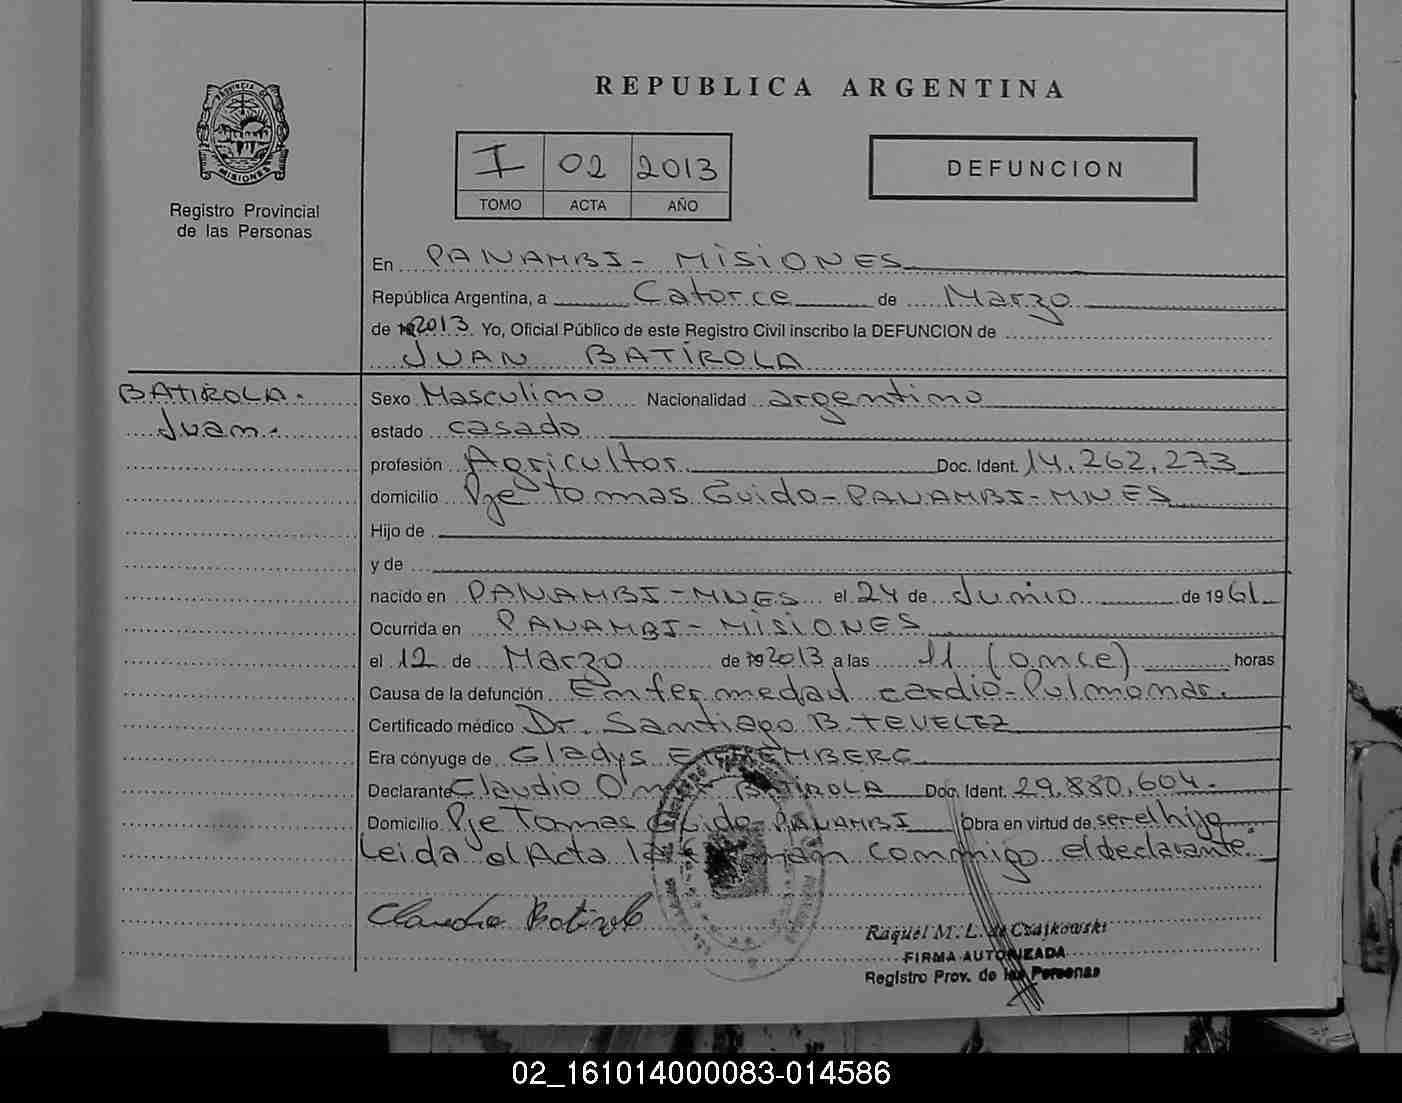 REPUBLICA ARGENTINA
PROVINCIA DE
MISIONES
Registro Provincial
de las Personas
I 02 2013
TOMO ACTA AÑO
DEFUNCION
En PANAMBI - MISIONES
República Argentina, a Catorce de Marzo
de 2013 Yo, Oficial Público de este Registro Civil inscribo la DEFUNCION de
JUAN BATIROLA
BATIROLA.
Juan.
Sexo Masculino Nacionalidad argentino
estado casado
profesión Agricultor Doc. Ident. 14.262.273
domicilio Pje Tomas Guido - PANAMBI - MNES
Hijo de
y de
nacido en PANAMBI - MNES el 24 de Junio de 1961
Ocurrida en PANAMBI - MISIONES
el 12 de Marzo de 2013 a las 11 (once) horas
Causa de la defunción Enfermedad cardio-Pulmonar.
Certificado médico Dr. Santiago B. TEVELEZ
Era cónyuge de Gladys
Declarante Claudio BATIROLA Doc. Ident. 29.880.604.
Domicilio Pje Tomas Guido PANAMBI Obra en virtud de ser el hijo
Leida el Acta la conmigo el declarante.
Claudio Batirola
Raquel M. L. de Czajkowski
FIRMA AUTORIZADA
Registro Prov. de las Personas
02_161014000083-014586